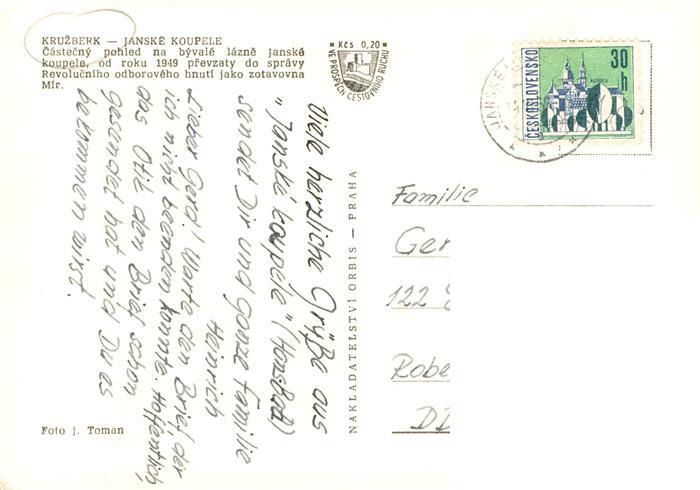 KRUŽBERK — JANSKÉ KOUPELE
Částečný pohled na bývalé lázně Janské
koupele, od roku 1949 převzaty do správy
Revolučního odborového hnutí jako zotavovna
Mír.
Kčs 0,20
VE PROSPĚCH CESTOVNÍHO RUCHU
ČESKOSLOVENSKO
30
h
JANSKÉ
Viele herzliche Grüße aus
"Janské koupele"
sendet Dir und ganze Familie
Heinrich
Lieber Gerd! Warte den Brief, der
ich nicht beenden konnte. Hoffentlich,
das Otik den Brief schon
gesendet hat und Du es
bekommen wirst.
NAKLADATELSTVÍ ORBIS — PRAHA
Familie
Ger
122
Robe
Foto J. Toman